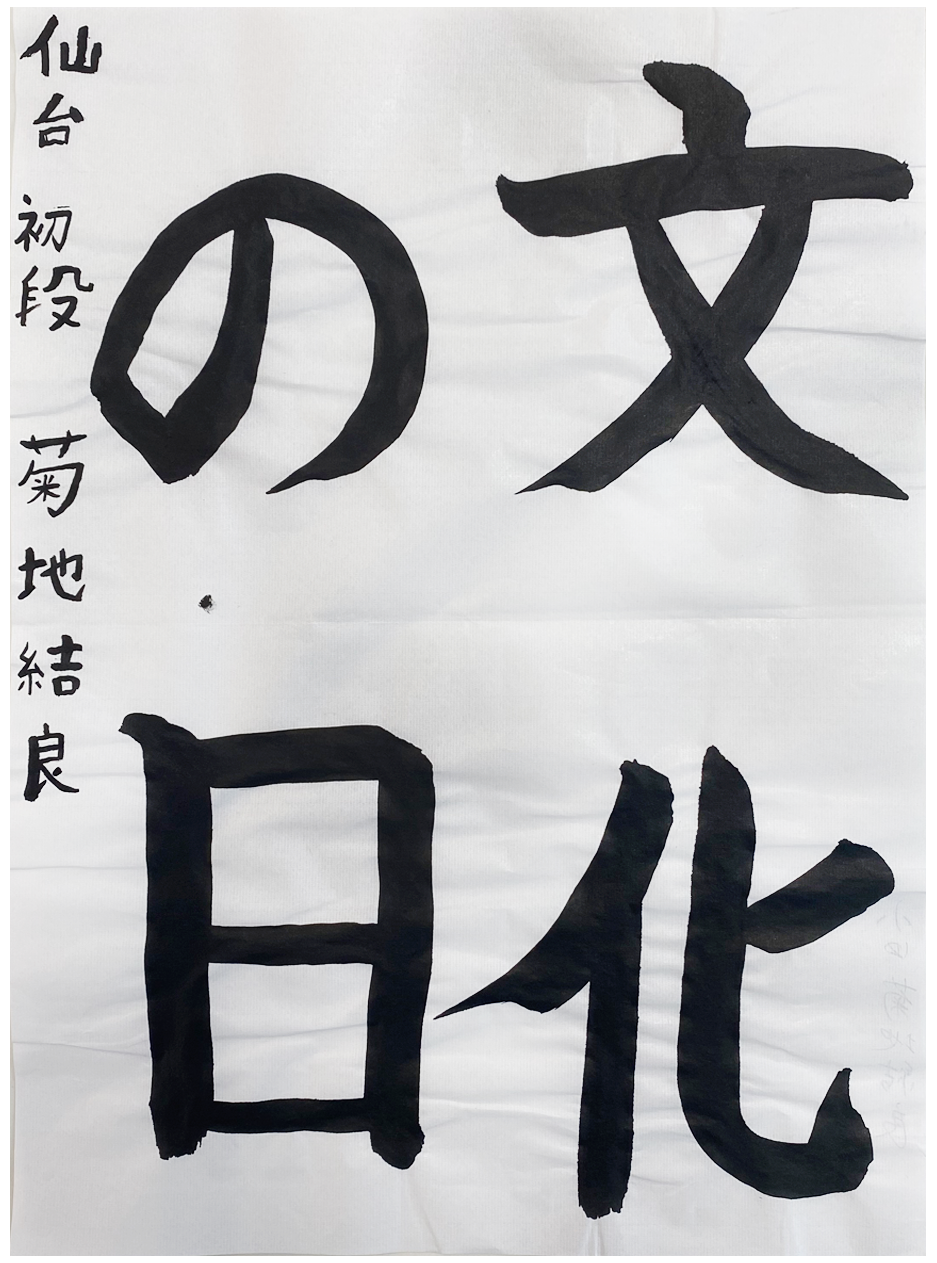 文化
の日
仙台 初段 菊地結良